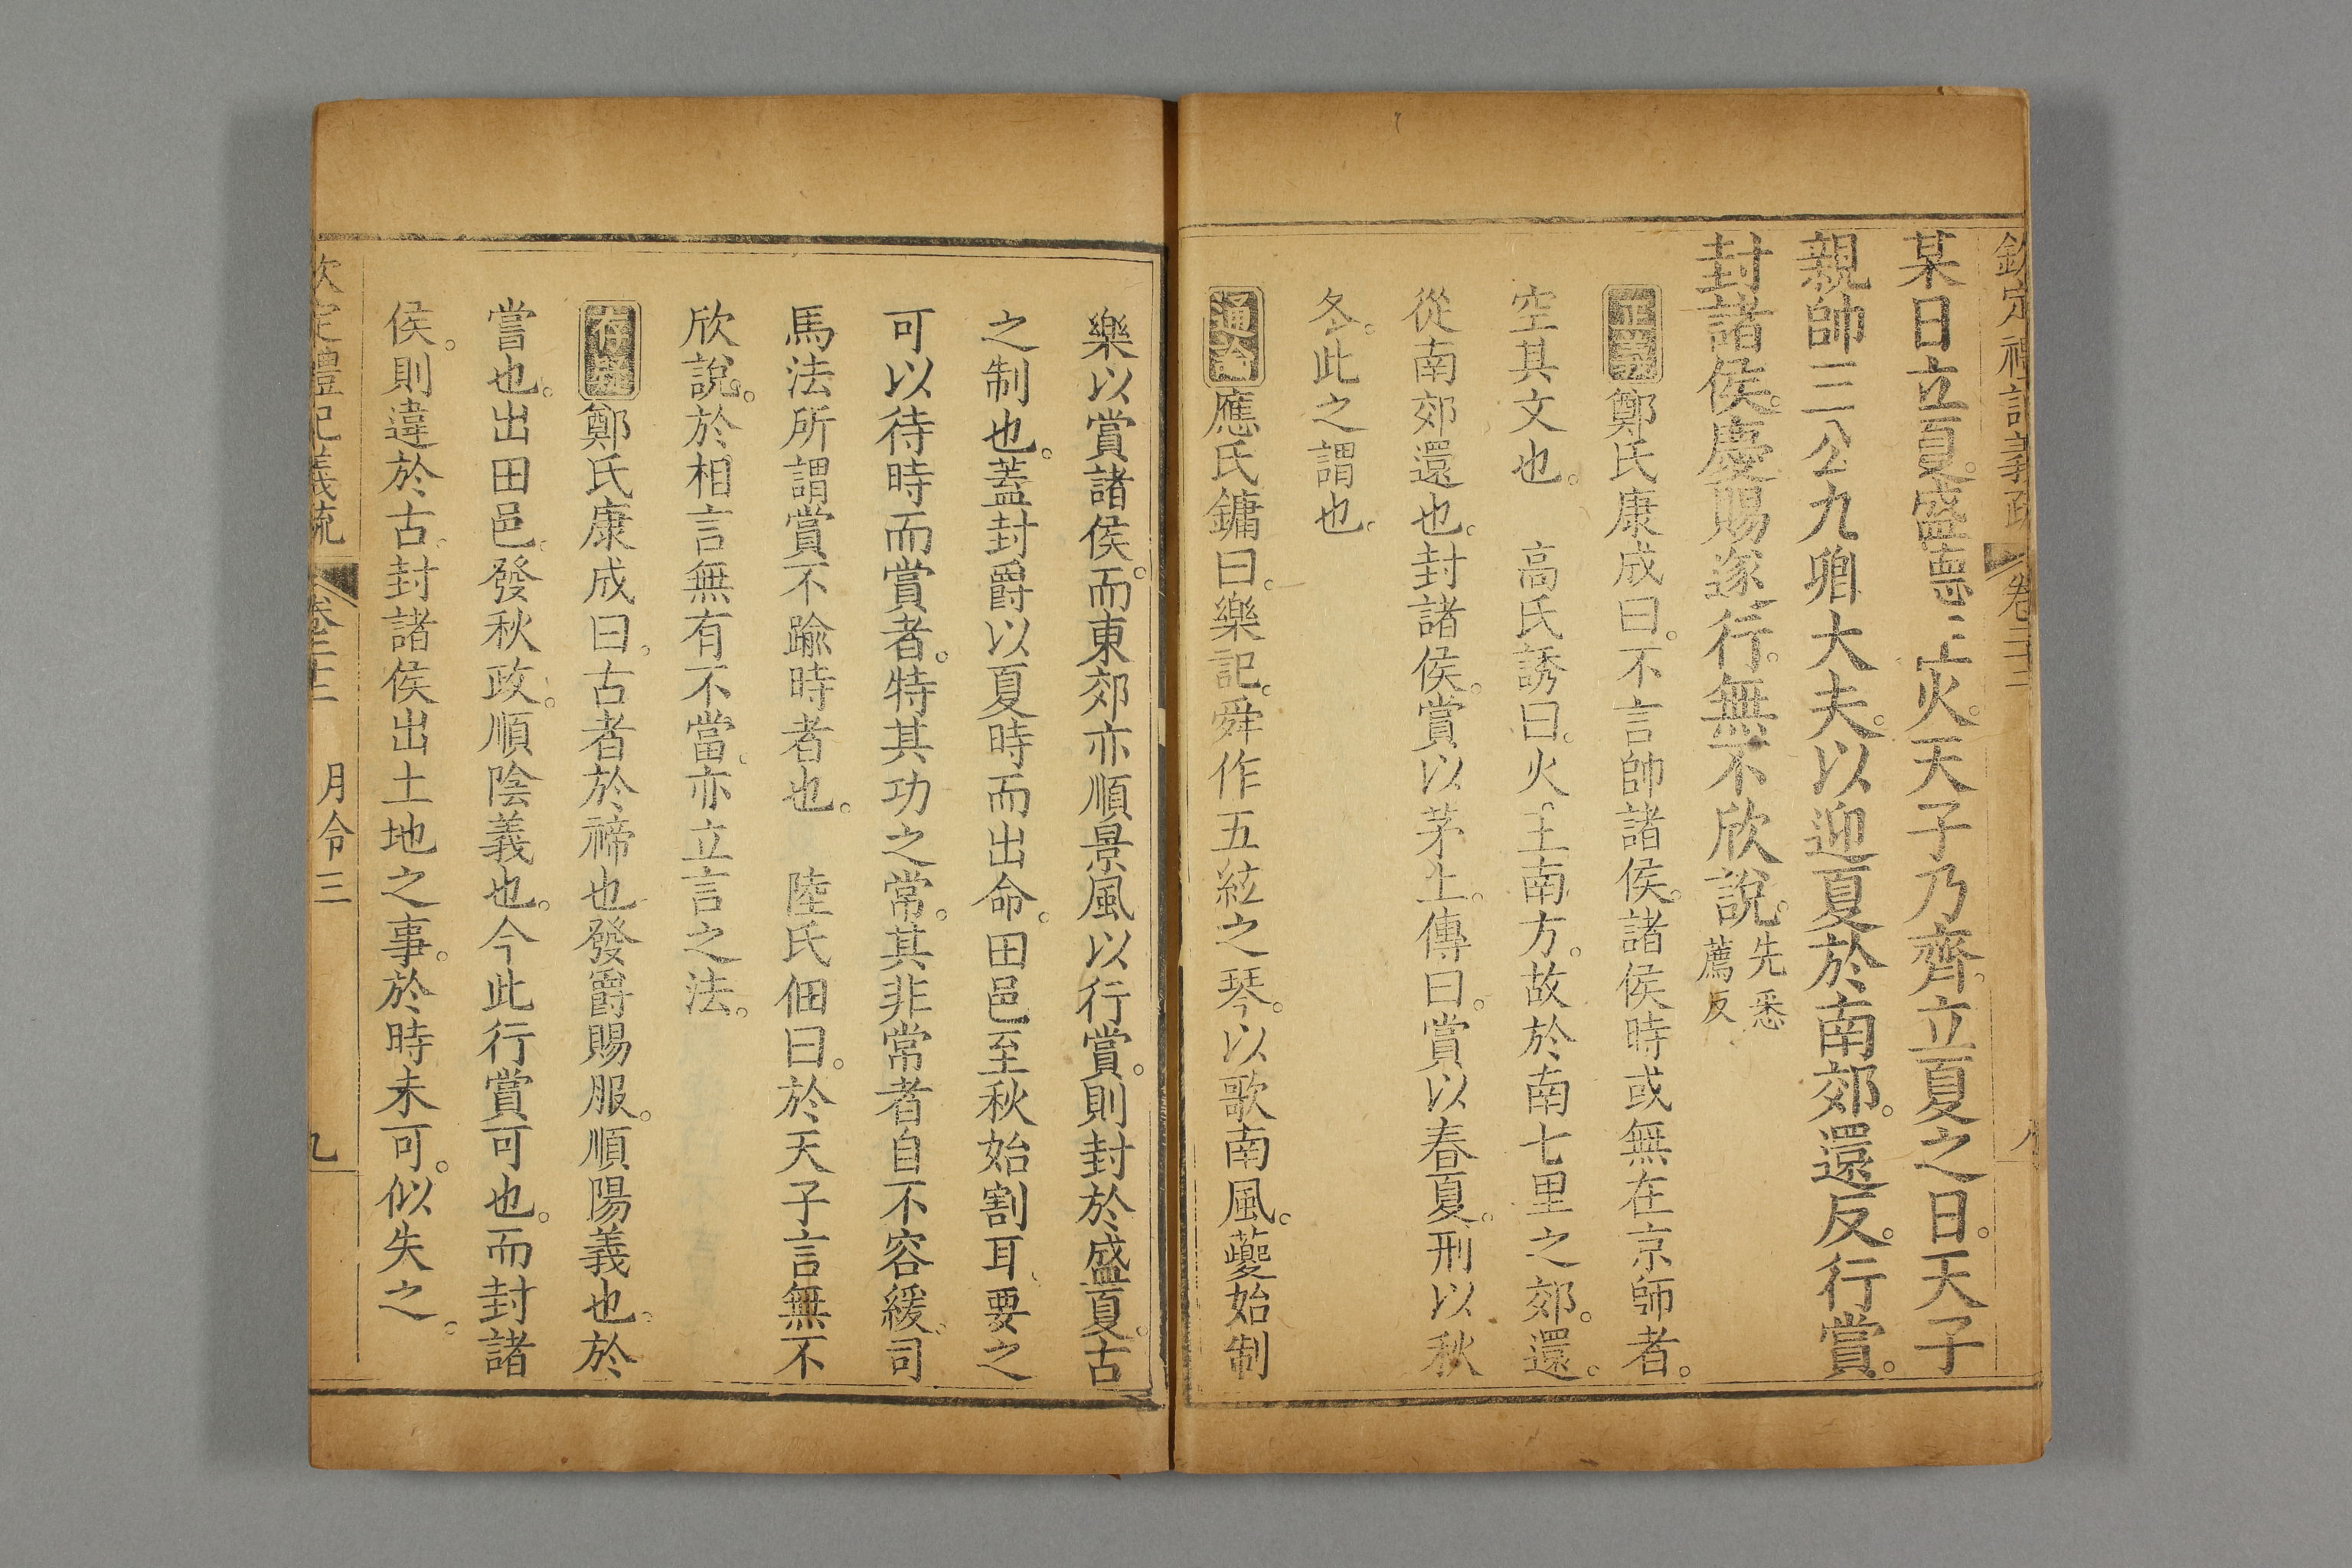 欽定禮記義疏 卷二十二 八
某日立夏。盛德在火。天子乃齊。立夏之日。天子
親帥三公九卿大夫。以迎夏於南郊。還反。行賞。
封諸侯。慶賜遂行。無不欣說。先悉薦反
正義鄭氏康成曰。不言帥諸侯。諸侯時或無在京師者。
空其文也。 高氏誘曰。火。王南方。故於南七里之郊。還。
從南郊還也。封諸侯。賞以茅土。傳曰。賞以春夏。刑以秋
冬。此之謂也。
通論應氏鏞曰。樂記。舜作五絃之琴。以歌南風。夔始制
樂以賞諸侯。而東郊亦順景風以行賞。則封於盛夏。古
之制也。蓋封爵以夏時而出命。田邑至秋始割耳。要之
可以待時而賞者。特其功之常。其非常者自不容緩。司
馬法所謂賞不踰時者也。 陸氏佃曰。於天子言無不
欣說。於相言無有不當。亦立言之法。
存疑鄭氏康成曰。古者於禘也發爵賜服。順陽義也。於
嘗也。出田邑。發秋政。順陰義也。今此行賞可也。而封諸
侯。則違於古。封諸侯出土地之事。於時未可。似失之。
欽定禮記義疏 卷二十二 月令三 九